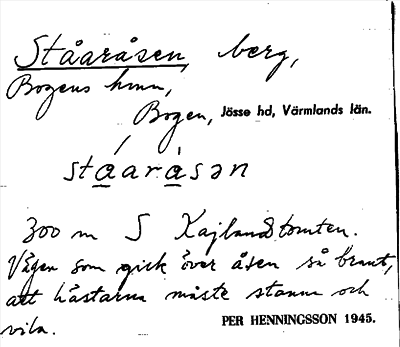 Ståaråsen, berg,
Bogens hmn,
Bogen, Jösse hd, Värmlands län.
ståaråsən
300 m S Kajlandstomten.
Vägen som gick över åsen så brant,
att hästarna måste stanna och
vila.
PER HENNINGSSON 1945.